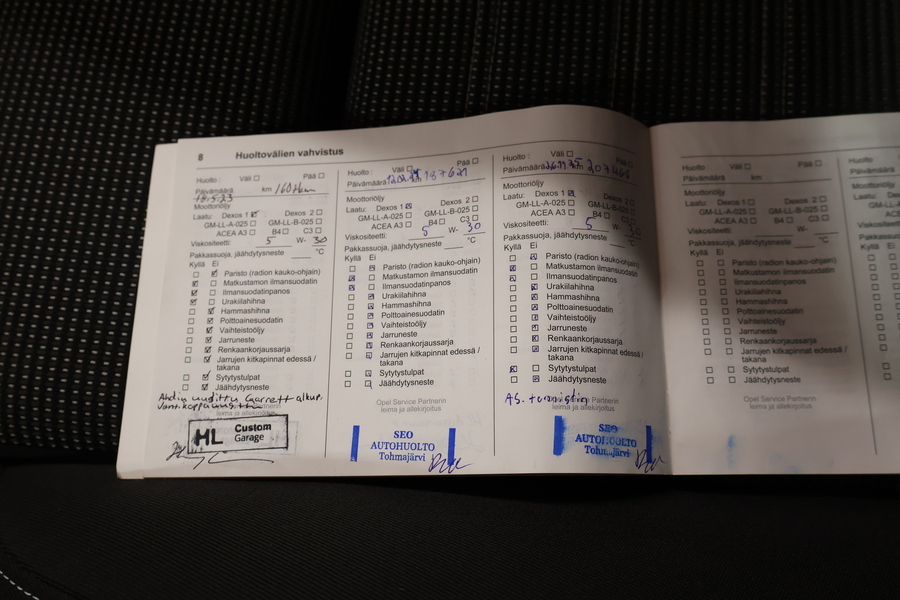 8 Huoltovälien vahvistus
Huolto: Väli Pää
Päivämäärä km 160tkm
18.5.23
Moottoriöljy
Laatu: Dexos 1 Dexos 2
GM-LL-A-025 GM-LL-B-025
ACEA A3 B4 C3
Viskositeetti: 5 W- 30
Pakkassuoja, jäähdytysneste °C
Kyllä Ei
Paristo (radion kauko-ohjain)
Matkustamon ilmansuodatin
Ilmansuodatinpanos
Urakiilahihna
Hammashihna
Polttoainesuodatin
Vaihteistoöljy
Jarruneste
Renkaankorjaussarja
Jarrujen kitkapinnat edessä /
takana
Sytytystulpat
Jäähdytysneste
Ahdin uudittu Garrett alkup.
leima ja allekirjoitus
HL Custom
Garage
Huolto: Väli Pää
Päivämäärä km 187621
Moottoriöljy
Laatu: Dexos 1 Dexos 2
GM-LL-A-025 GM-LL-B-025
ACEA A3 B4 C3
Viskositeetti: 5 W- 30
Pakkassuoja, jäähdytysneste °C
Kyllä Ei
Paristo (radion kauko-ohjain)
Matkustamon ilmansuodatin
Ilmansuodatinpanos
Urakiilahihna
Hammashihna
Polttoainesuodatin
Vaihteistoöljy
Jarruneste
Renkaankorjaussarja
Jarrujen kitkapinnat edessä /
takana
Sytytystulpat
Jäähdytysneste
Opel Service Partnerin
leima ja allekirjoitus
SEO
AUTOHUOLTO
Tohmajärvi
Huolto: Väli Pää
Päivämäärä km
Moottoriöljy
Laatu: Dexos 1 Dexos 2
GM-LL-A-025 GM-LL-B-025
ACEA A3 B4 C3
Viskositeetti: 5 W- 30
Pakkassuoja, jäähdytysneste °C
Kyllä Ei
Paristo (radion kauko-ohjain)
Matkustamon ilmansuodatin
Ilmansuodatinpanos
Urakiilahihna
Hammashihna
Polttoainesuodatin
Vaihteistoöljy
Jarruneste
Renkaankorjaussarja
Jarrujen kitkapinnat edessä /
takana
Sytytystulpat
Jäähdytysneste
Opel Service Partnerin
leima ja allekirjoitus
SEO
AUTOHUOLTO
Tohmajärvi
Huolto: Väli Pää
Päivämäärä km
Moottoriöljy
Laatu: Dexos 1 Dexos 2
GM-LL-A-025 GM-LL-B-025
ACEA A3 B4 C3
Viskositeetti: W-
Pakkassuoja, jäähdytysneste °C
Kyllä Ei
Paristo (radion kauko-ohjain)
Matkustamon ilmansuodatin
Ilmansuodatinpanos
Urakiilahihna
Hammashihna
Polttoainesuodatin
Vaihteistoöljy
Jarruneste
Renkaankorjaussarja
Jarrujen kitkapinnat edessä /
takana
Sytytystulpat
Jäähdytysneste
Opel Service Partnerin
leima ja allekirjoitus
Huolto
Päivämäärä
Moottoriöljy
Laatu:
GM-LL-A
Kyllä